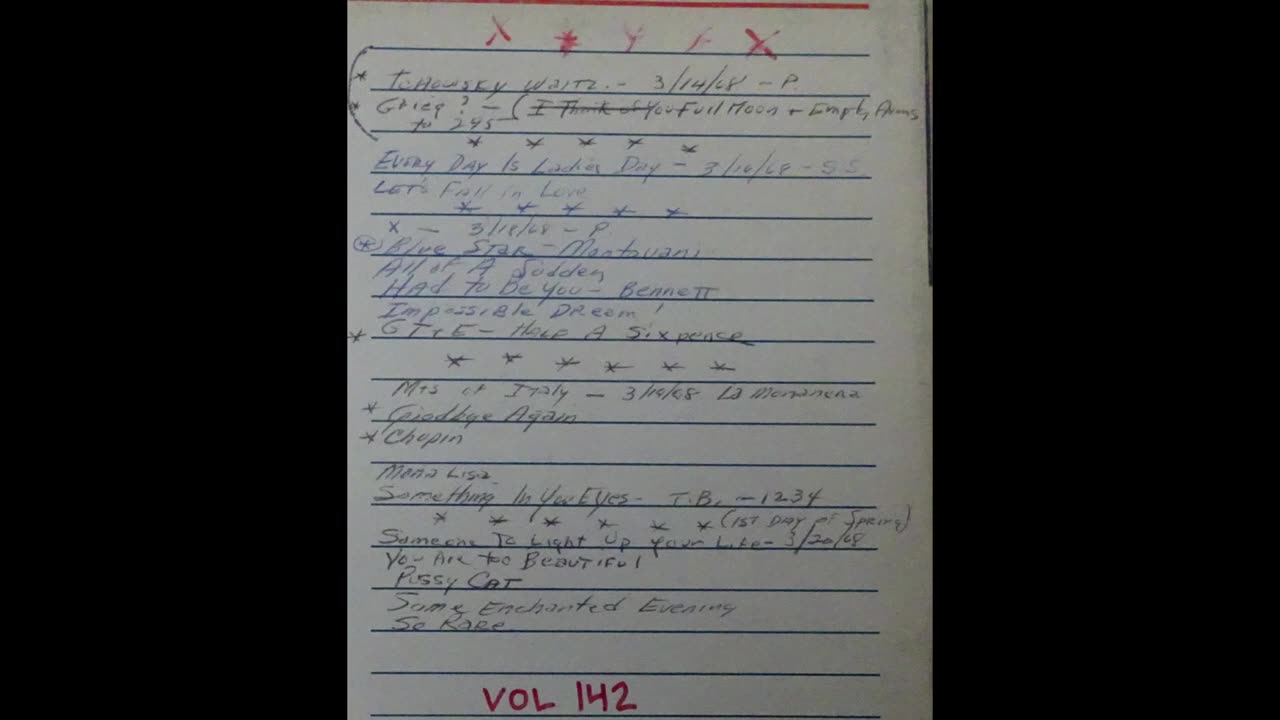 X * Y F X
* TCHOWSKY WALTZ - 3/14/68 - P.
* Grieg? - (I Think of You Full Moon + Empty Arms
to 295
* * * * *
EVERY DAY IS LADIES DAY - 3/16/68 - S.S.
LET'S Fall in Love
* * * * *
X - 3/18/68 - P.
* Blue STAR - Mantovani
All of A Sudden
HAd to Be You - BENNETT
IMPOSSIBLE DREAM!
* - HALF A Sixpence
* * * * * *
Mts of Italy - 3/19/68 La Montanara
* Goodbye Again
* Chopin
Mona Lisa
Something In Your Eyes - T.B. - 1234
* * * * * * (1ST DAY of Spring)
Someone To Light Up Your Life - 3/20/68
You Are too BEAUTIFUL
PUSSY CAT
Some Enchanted Evening
So RARE
VOL 142